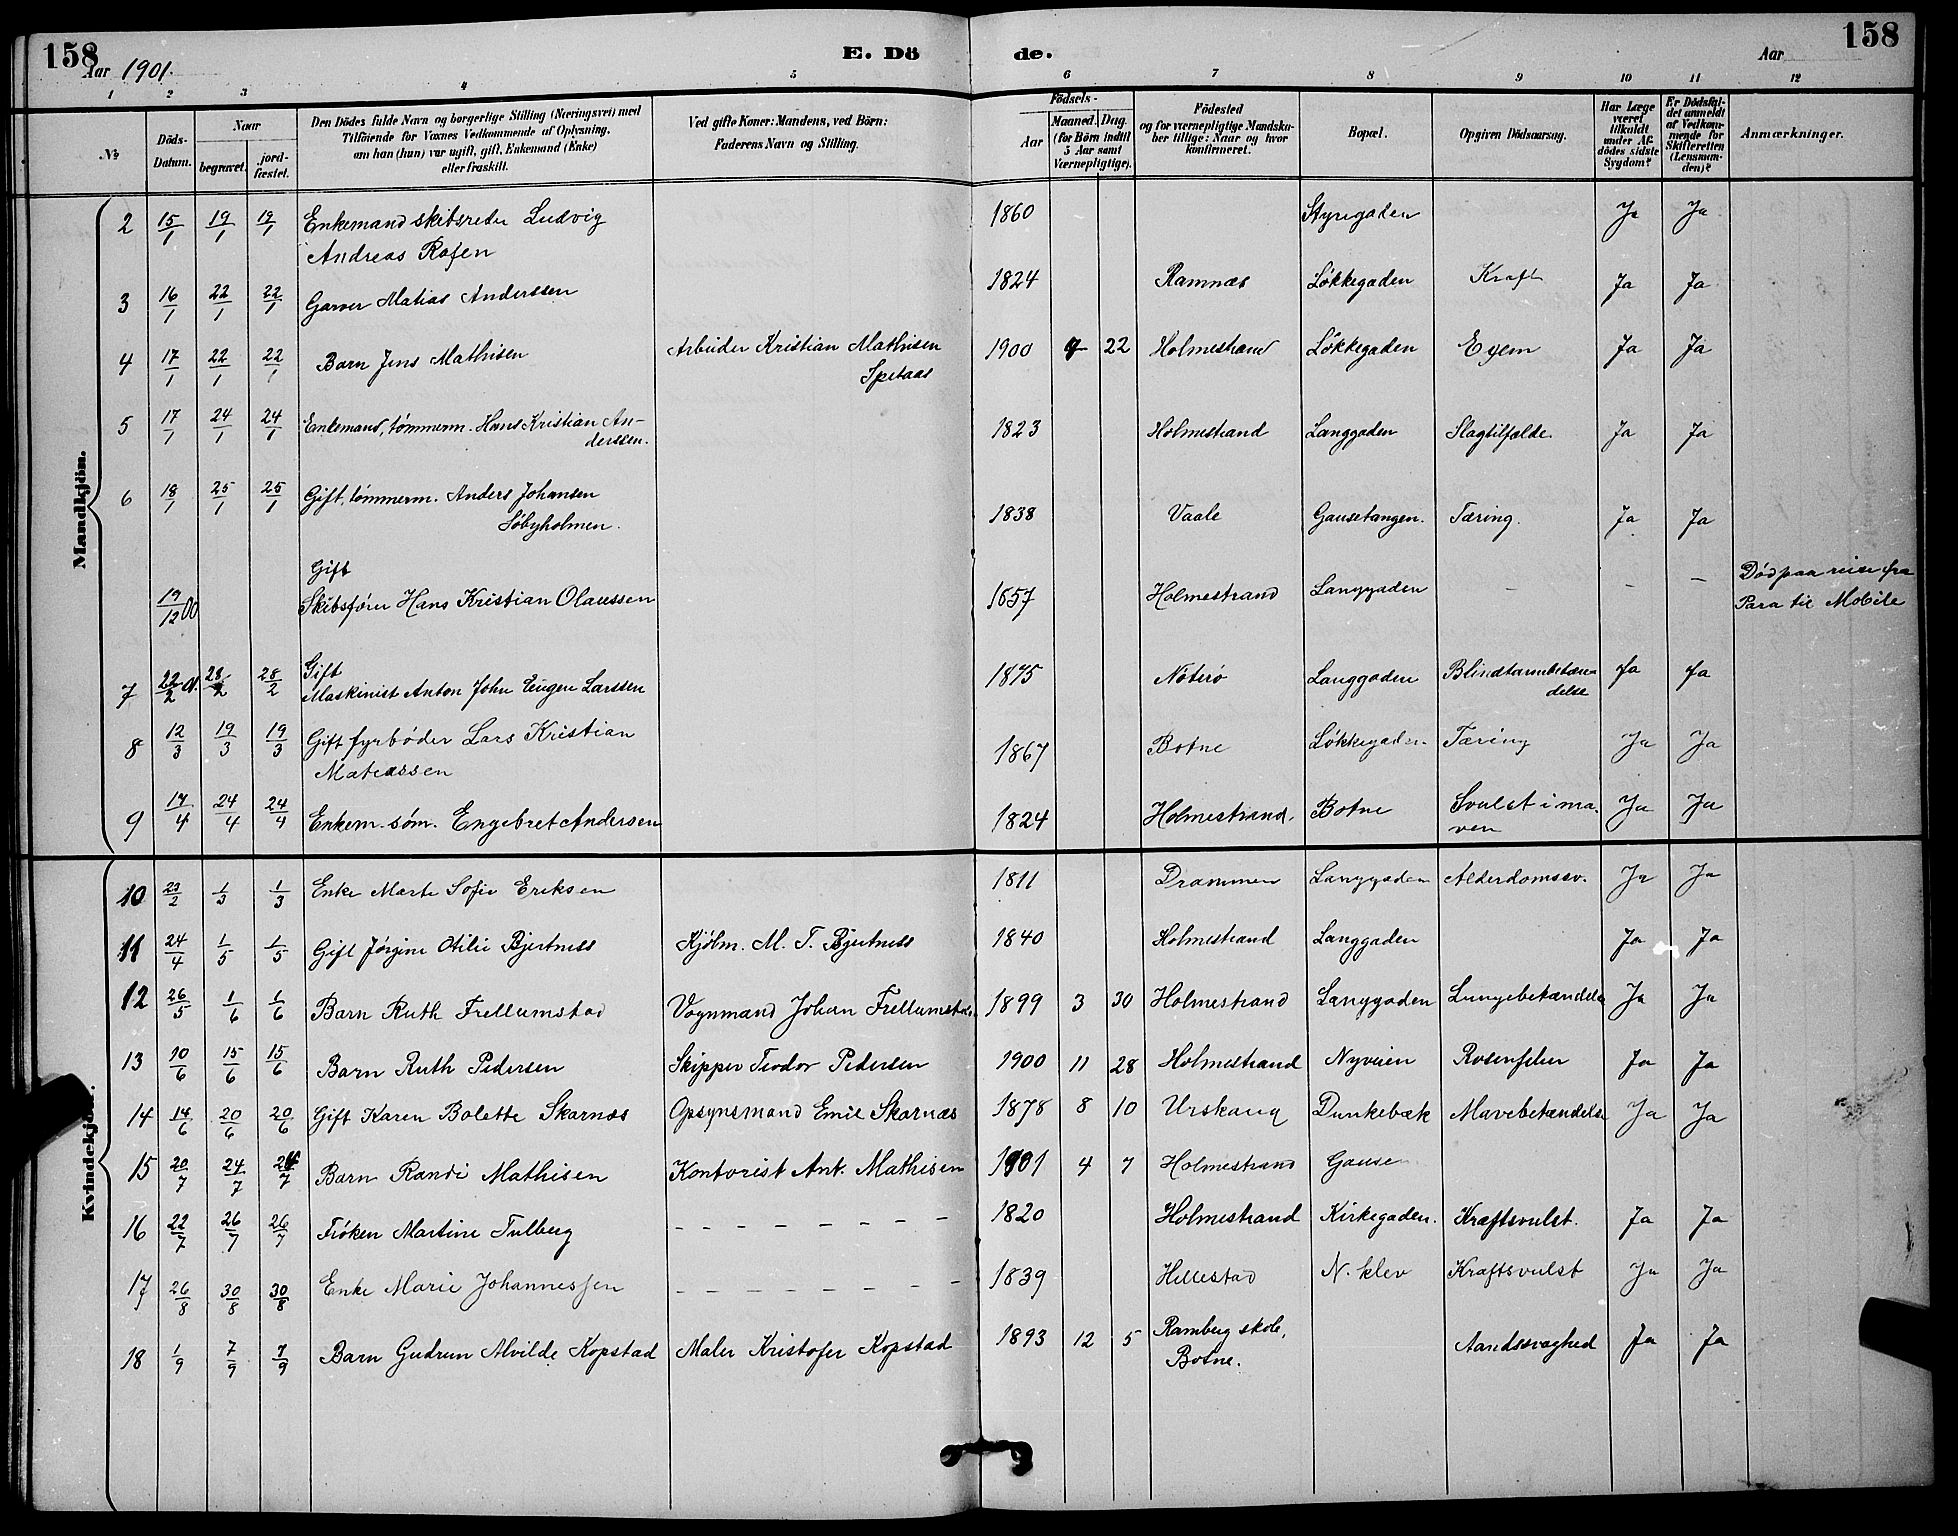 158 E. Dö de. 158
Aar 1901. Aar
1 2 3 4 5 6 7 8 9 10 11 12
№
Döds-Datum.
Naar
begravet.
jord-fæstet.
Den Dödes fulde Navn og borgerlige Stilling (Næringsvei) med
Tilföiende for Voxnes Vedkommende af Oplysning,
om han (hun) var ugift, gift, Enkemand (Enke)
eller fraskilt.
Ved gifte Koner: Mandens, ved Börn:
Faderens Navn og Stilling.
Födsels-
Aar
Maaned. Dag.
(for Börn indtil
5 Aar samt
Værnepligtige).
Födested
og for værnepligtige Mandska-
ber tillige: Naar og hvor
konfirmeret.
Bopæl.
Opgiven Dödsaarsag.
Har Læge
været
tilkaldt
under Af-
dödes sidste
Sygdom?
Er Dödsfal-
det anmeldt
af Vedkom-
mende for
Skifteretten
(Lensman-
den)?
Anmærkninger.
Mandkjön.
2 15/1 19/1 19/1 Enkemand skibsreder Ludvig 1860 Styregaden Ja Ja
Andreas Rafen
3 16/1 22/1 22/1 Garver Matias Anderssen 1824 Ramnæs Løkkegaden Kræft Ja Ja
4 17/1 22/1 22/1 Barn Jens Mathisen Arbeider Kristian Mathisen 1900 9 22 Holmestrand Løkkegaden Exem Ja Ja
5 17/1 24/1 24/1 Enkemand, tømmerm. Hans Kristian An- 1823 Holmestrand Langgaden Slagtilfælde. Ja Ja
derssen.
6 18/1 25/1 25/1 Gift, tømmerm. Anders Johansen 1838 Vaale Gausetangen. Tæring. Ja Ja
Søbyholmen.
Gift
19/12 00 Skibsfører Hans Kristian Olaussen 1857 Holmestrand Langgaden - - - Død paa reise fra
Para til Mobile
Gift
7 22/2 01. 28/2 28/2 Maskinist Anton John Eugen Larssen 1875 Nøterø Langgaden Blindtarmbetæn- Ja Ja
delse
8 12/3 19/3 19/3 Gift fyrbøder Lars Kristian 1867 Botne Løkkegaden Tæring Ja Ja
Matiassen
9 17/4 24/4 24/4 Enkem. søm. Engebret Andersen 1824 Holmestrand. Botne Svulst i ma- Ja Ja
ven
Kvindekjön.
10 23/2 1/3 1/3 Enke Marte Sofie Eriksen 1811 Drammen Langgaden Alderdomssv. Ja Ja
11 24/4 1/5 1/5 Gift Jørgine Otilie Bjertness Kjøbm. M. T. Bjertness 1840 Holmestrand Langgaden Ja Ja
12 26/5 1/6 1/6 Barn Ruth Frellumstad Vognmand Johan Frellumstad. 1899 3 30 Holmestrand Langgaden Lungebetændelse Ja Ja
13 10/6 15/6 15/6 Barn Ruth Pedersen Skipper Teodor Pedersen 1900 11 28 Holmestrand Nyveien Rosenfeber Ja Ja
14 14/6 20/6 20/6 Gift Karen Bolette Skarnæs Opsynsmand Emil Skarnæs 1878 8 10 Urskaug Dunkebæk Mavebetændelse Ja Ja
15 20/7 24/7 24/7 Barn Randi Mathisen Kontorist Ant. Mathisen 1901 4 7 Holmestrand Gausen
16 22/7 26/7 26/7 Frøken Martine Tulberg - - - - - - - - 1820 Holmestrand Kirkegaden. Kræftsvulst. Ja Ja
17 26/8 30/8 30/8 Enke Marie Johannessen - - - - - - - - 1839 Hillestad N. klev Kræftsvulst Ja Ja
18 1/9 7/9 7/9 Barn Gudrun Alvilde Kopstad Maler Kristofer Kopstad 1893 12 5 Ramberg skole, Aandssvaghed Ja Ja
Botne.